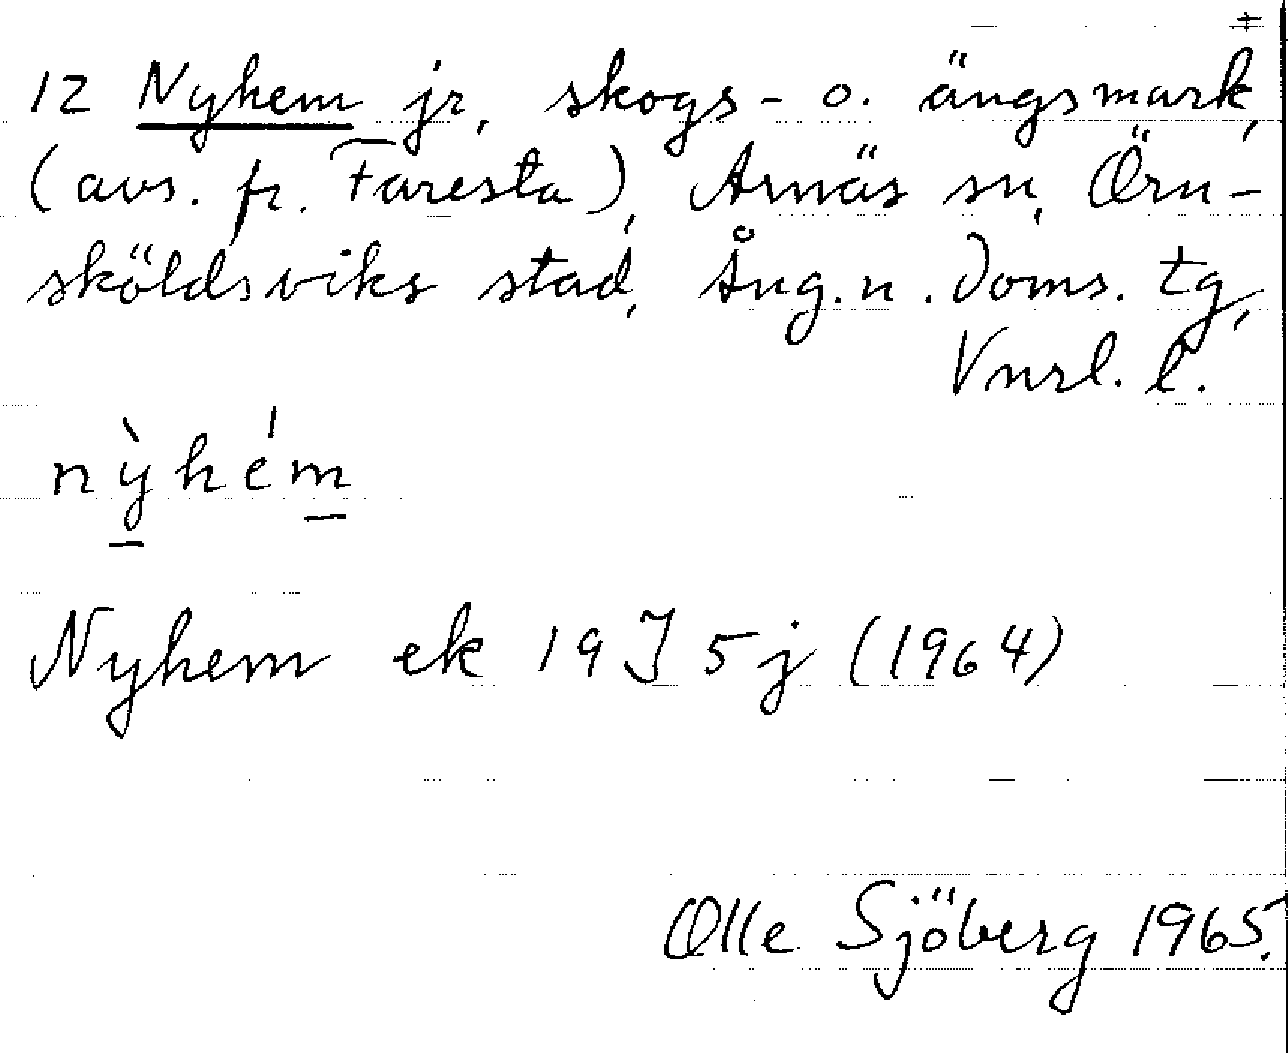 ‡
12 Nyhem jr, skogs- o. ängsmark,
(avs. fr. Faresta), Arnäs sn, Örn-
sköldsviks stad, Ång. n. doms. tg,
Vnrl. l.
nỳhém
Nyhem ek 19 J 5 j (1964)
Olle Sjöberg 1965.